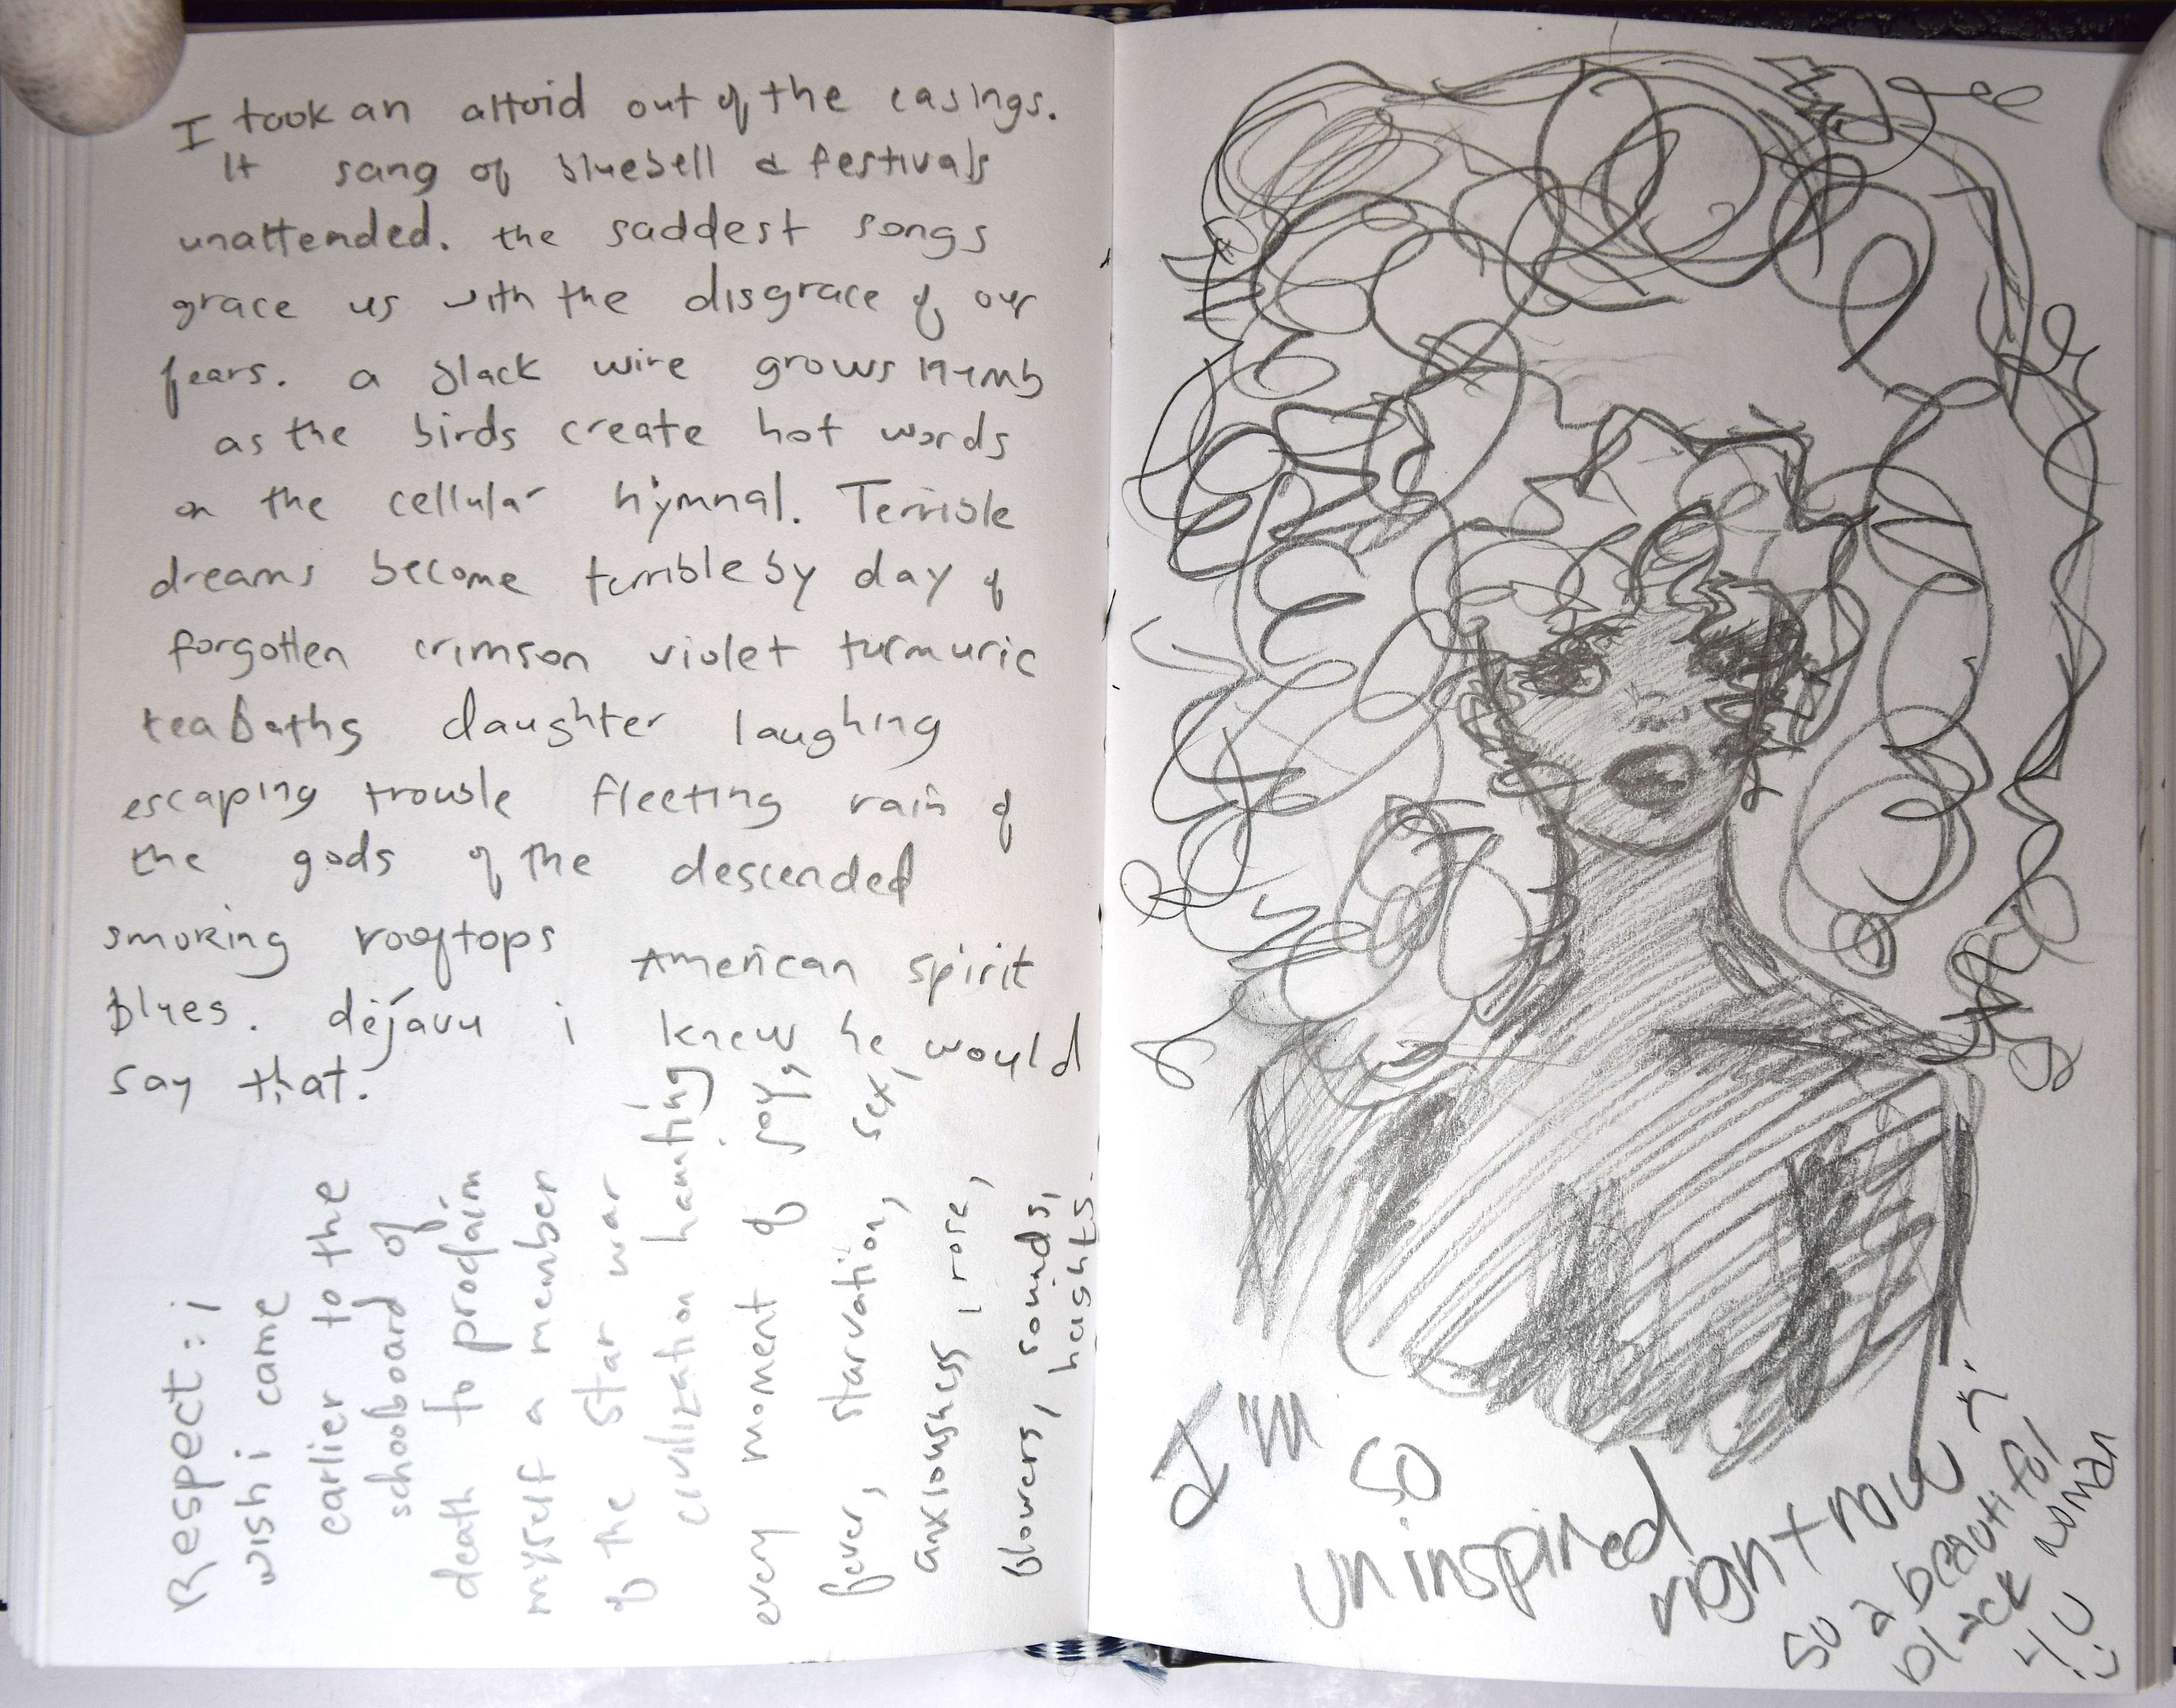 I took an altoid out of the casings.
It sang of bluebell & festivals
unattended. the saddest songs
grace us with the disgrace of our
fears. a black wire grows numb
as the birds create hot words
on the cellular hymnal. Terrible
dreams become terrible by day of
forgotten crimson violet turmuric
tea baths daughter laughing
escaping trouble fleeting rain of
the gods of the descended
smoking rooftops American spirit
blues. déjavu i knew he would
say that.
Respect: i
wish i came
earlier to the
schoolboard of
death to proclaim
myself a member
of the star war
civilization haunting
every moment of joy,
fever, starvation, sex,
anxiousness, rose,
flowers, sounds,
heights.
I'm
so
uninspired
right now :
so a beautiful
black woman
4 U